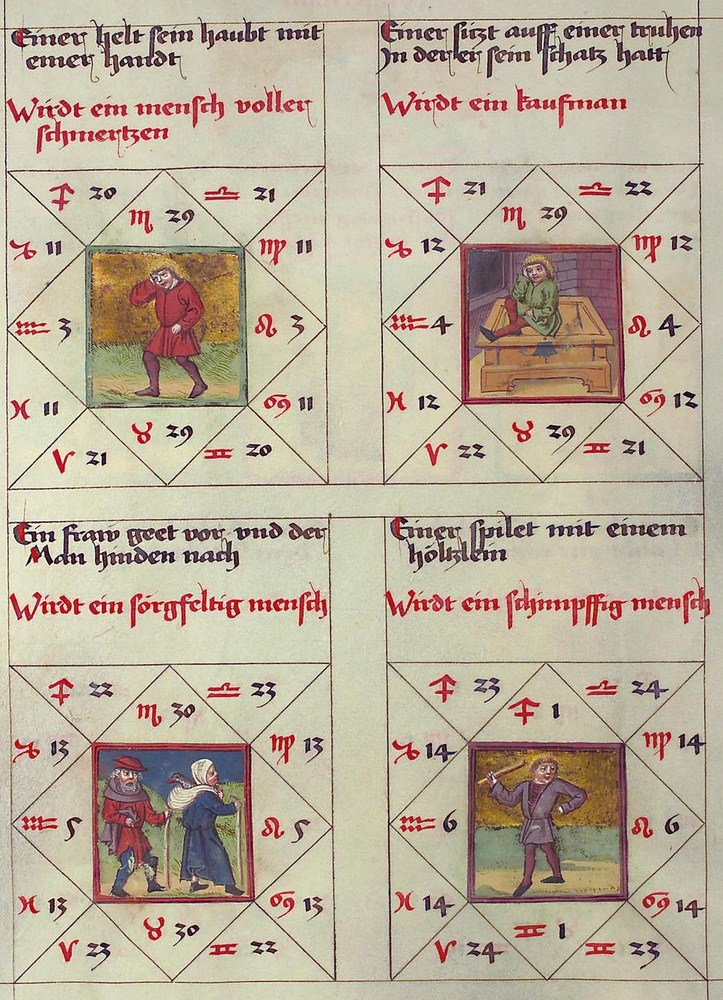 Einer helt sein haubt mit
einer handt
Wirdt ein mensch voller
schmertzen
♐ 20
♏ 29
♎ 21
♑ 11
♍ 11
♒ 3
♌ 3
♓ 11
♋ 11
♈ 21
♉ 29
♊ 20
Einer sitzt auff einer truhen
In der er sein schatz hatt
Wirdt ein kaufman
♐ 21
♏ 29
♎ 22
♑ 12
♍ 12
♒ 4
♌ 4
♓ 12
♋ 12
♈ 22
♉ 29
♊ 21
Ein fraw geet vor vnd der
Man hinden nach
Wirdt ein sorgfeltig mensch
♐ 22
♏ 30
♎ 23
♑ 13
♍ 13
♒ 5
♌ 5
♓ 13
♋ 13
♈ 23
♉ 30
♊ 22
Einer spilet mit einem
höltzlein
Wirdt ein schimpffig mensch
♐ 23
♐ 1
♎ 24
♑ 14
♍ 14
♒ 6
♌ 6
♓ 14
♋ 14
♈ 24
♊ 1
♊ 23